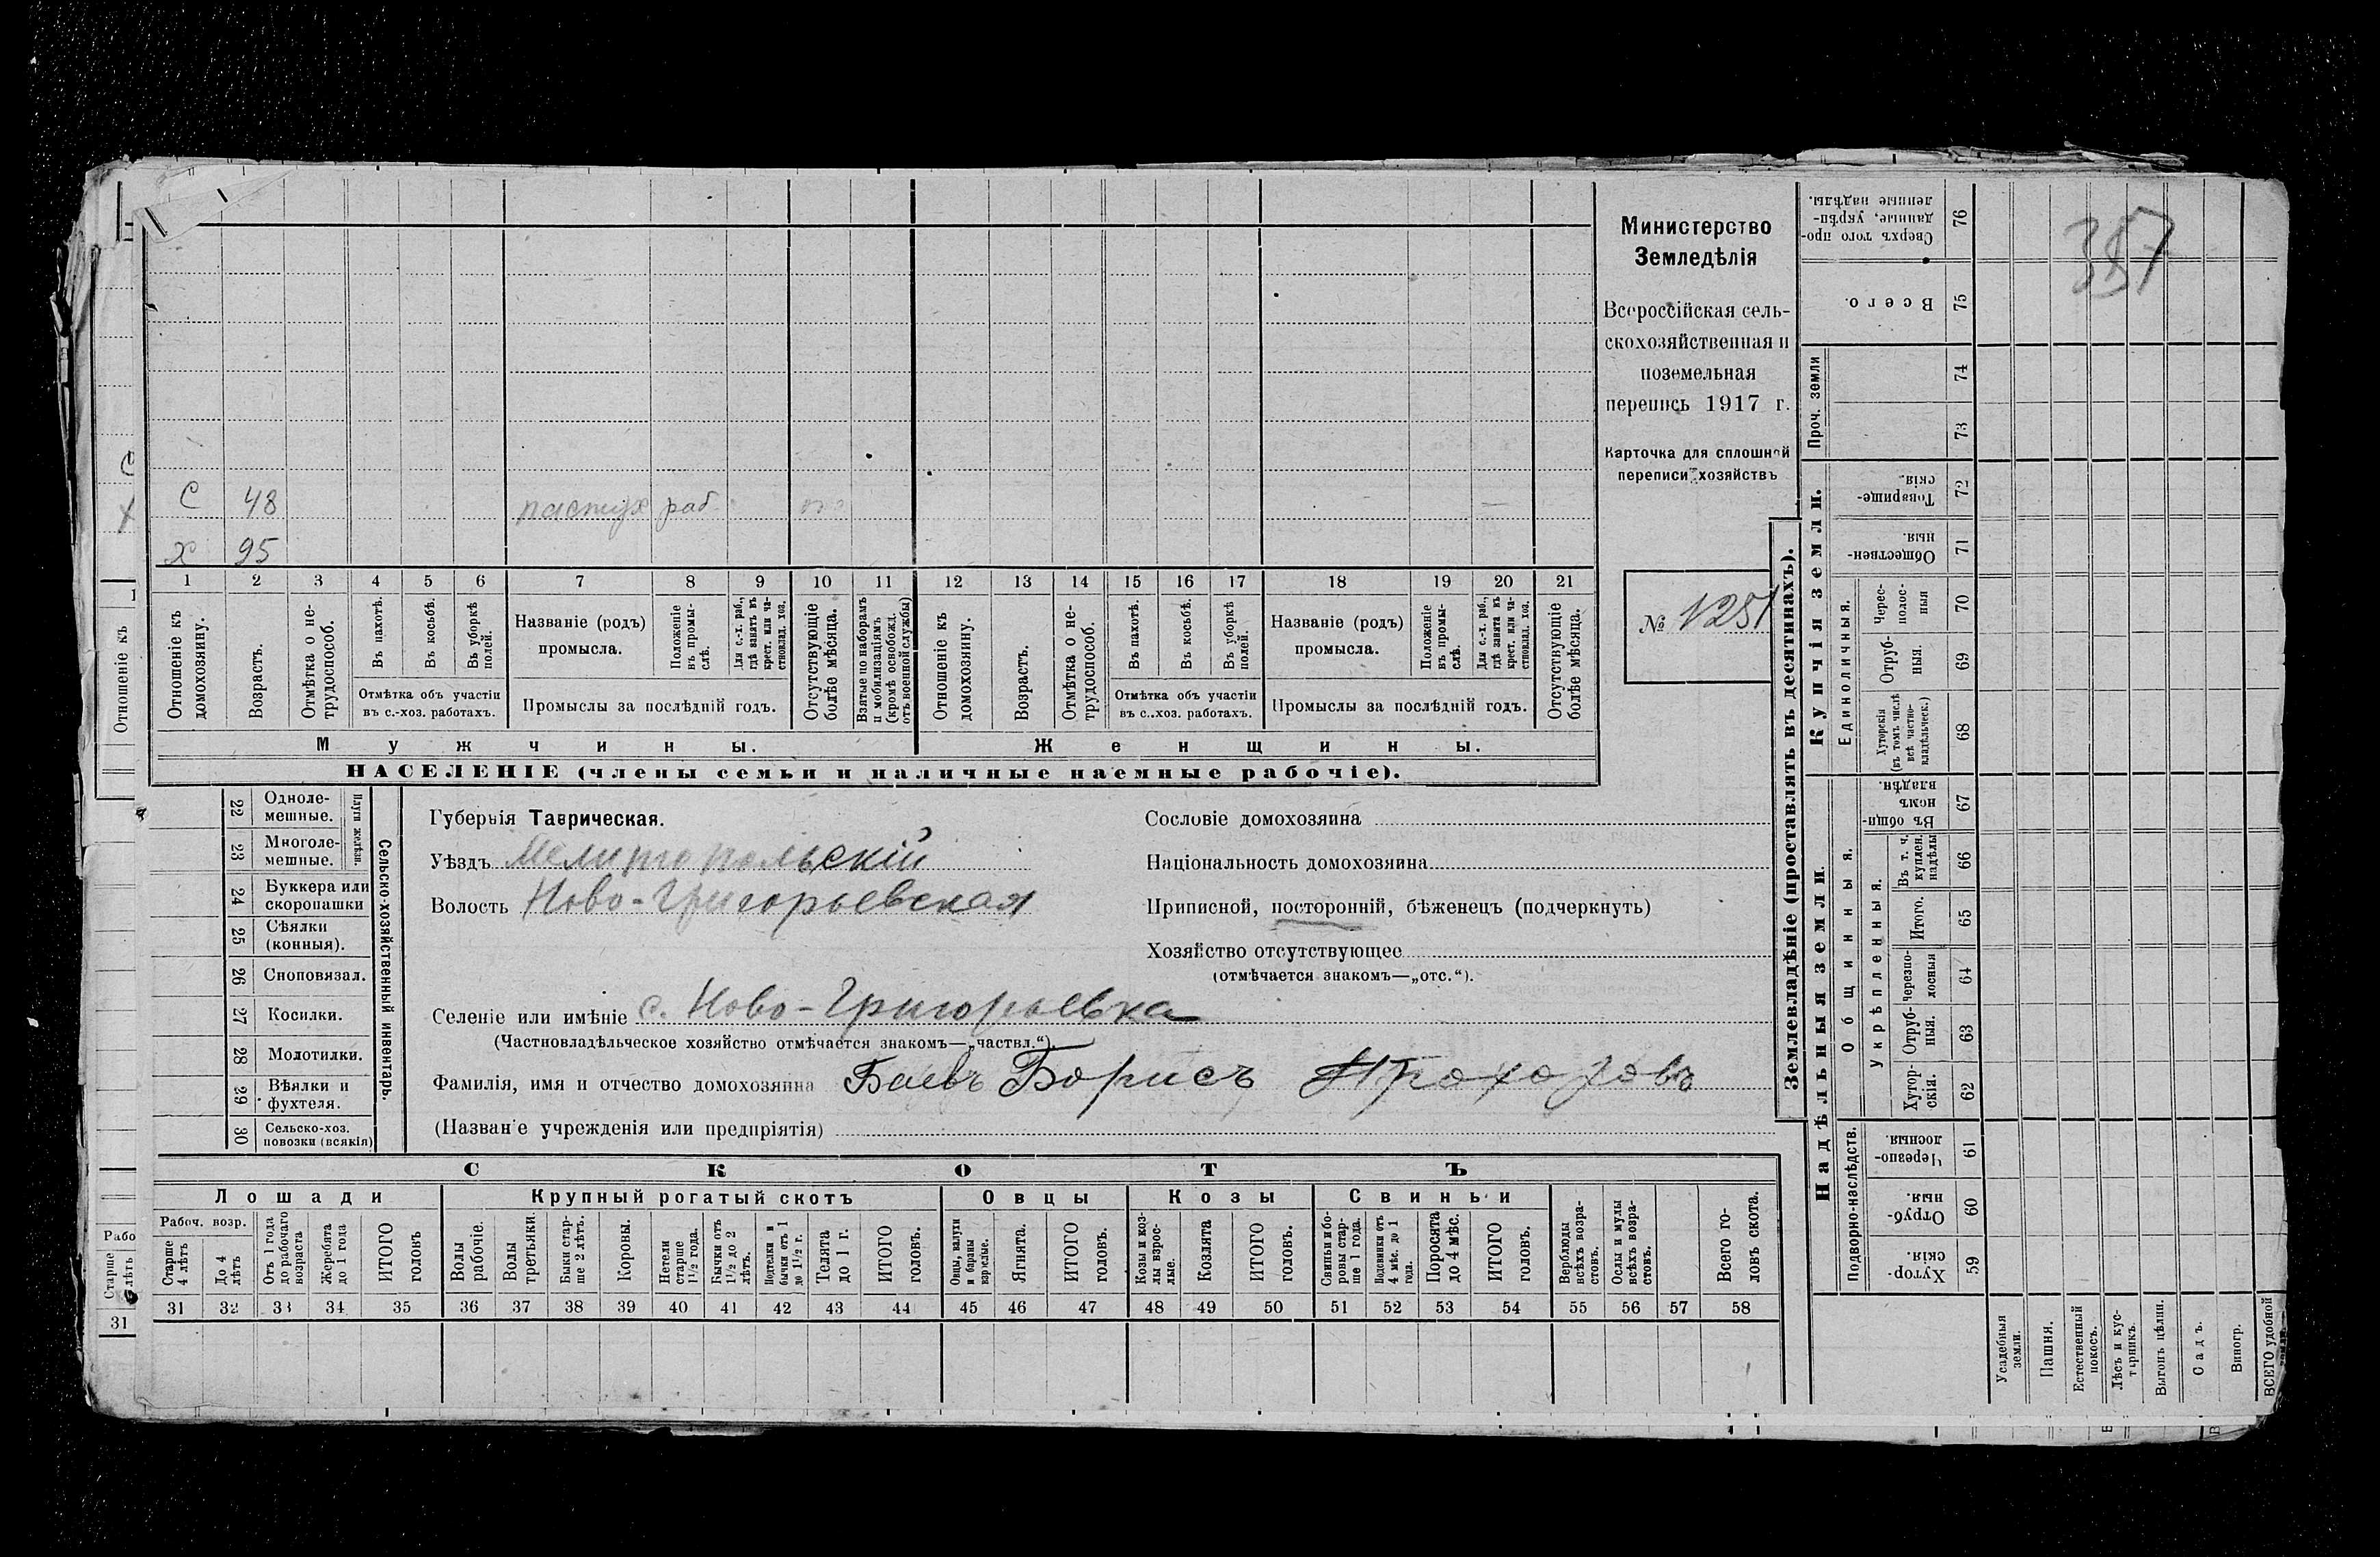 357
Министерство
Земледѣлія
Всероссійская сель-
скохозяйственная и
поземельная
перепись 1917 г.
Карточка для сплошной
переписи хозяйствъ
№ 1251
С 48 пастух раб.
Х 95
1 2 3 4 5 6 7 8 9 10 11 12 13 14 15 16 17 18 19 20 21
Отношеніе къ домохозяину.
Возрастъ.
Отмѣтка о не-трудоспособ.
Въ пахотѣ.
Въ косьбѣ.
Въ уборкѣ полей.
Отмѣтка объ участіи
въ с.-хоз. работахъ.
Названіе (родъ)
промысла.
Положеніе въ промы-слѣ.
Для с.-х. раб., гдѣ занятъ въ крест. или ча-стновлад. хоз.
Промыслы за послѣдній годъ.
Отсутствующіе болѣе мѣсяца.
Взятые по наборамъ и мобилизаціямъ (кромѣ освобожд. отъ военной службы)
Отношеніе къ домохозяину.
Возрастъ.
Отмѣтка о не-трудоспособ.
Въ пахотѣ.
Въ косьбѣ.
Въ уборкѣ полей.
Отмѣтка объ участіи
въ с.-хоз. работахъ.
Названіе (родъ)
промысла.
Положеніе въ промы-слѣ.
Для с.-х. раб., гдѣ занята въ крест. или ча-стновлад. хоз.
Промыслы за послѣдній годъ.
Отсутствующіе болѣе мѣсяца.
Мужчины.
Женщины.
НАСЕЛЕНІЕ (члены семьи и наличные наемные рабочіе).
22 Одноле-мешные.
23 Многоле-мешные.
Плуги желѣзн.
24 Буккера или скоропашки
25 Сѣялки (конныя).
26 Сноповязал.
27 Косилки.
28 Молотилки.
29 Вѣялки и фухтеля.
30 Сельско-хоз. повозки (всякія)
Сельско-хозяйственный инвентарь.
Губернія Таврическая.
Уѣздъ Мелитопольскій
Волость Ново-Григорьевская
Сословіе домохозяина
Національность домохозяина
Приписной, посторонній, бѣженецъ (подчеркнуть)
Хозяйство отсутствующее
(отмѣчается знакомъ—„отс.“).
Селеніе или имѣніе с. Ново-Григорьевка
(Частновладѣльческое хозяйство отмѣчается знакомъ—„частвл.“).
Фамилія, имя и отчество домохозяина Баевъ Борисъ Прохоровъ
(Названіе учрежденія или предпріятія)
СКОТЪ
Лошади
Крупный рогатый скотъ
Овцы
Козы
Свиньи
Рабоч. возр.
Старше 4 лѣтъ
До 4 лѣтъ
Отъ 1 года до рабочаго возраста
Жеребята до 1 года
ИТОГО головъ
Волы рабочіе.
Волы третьяки.
Быки стар-ше 2 лѣтъ.
Коровы.
Нетели старше 1½ года.
Бычки отъ 1½ до 2 лѣтъ.
Подтелки и бычки отъ 1 до 1½ г.
Телята до 1 г.
ИТОГО головъ.
Овцы, валухи и бараны взрослые.
Ягнята.
ИТОГО головъ.
Козы и коз-лы взрос-лые.
Козлята
ИТОГО головъ.
Свиньи и бо-ровы стар-ше 1 года.
Подсвинки отъ 4 мѣс. до 1 года.
Поросята до 4 мѣс.
ИТОГО головъ.
Верблюды всѣхъ возра-стовъ.
Ослы и мулы всѣхъ возра-стовъ.
Всего го-ловъ скота.
31 32 33 34 35 36 37 38 39 40 41 42 43 44 45 46 47 48 49 50 51 52 53 54 55 56 57 58
Землевладѣніе (проставлять въ десятинахъ).
Купчія земли.
Надѣльныя земли.
76 Сверхъ того про-данные, укрѣп-ленные надѣлы.
75 Всего.
Проч. земли
74
73
72 Товарище-скія.
71 Обществен-ныя.
Единоличныя.
70 Черес-полос-ныя
69 Отруб-ныя.
68 Хуторскія (въ томъ числѣ всѣ частно-владѣльческ.)
Общинныя.
67 Въ общи-номъ владѣн.
Укрѣпленныя.
66 Въ т. ч. куплен. надѣлы
65 Итого.
64 черезпо-лосныя
63 Отруб-ныя.
62 Хутор-скія.
Подворно-наслѣдств.
61 Черезпо-лосныя.
60 Отруб-ныя.
59 Хутор-скія.
Усадебныя земли.
Пашня.
Естественный покосъ.
Лѣсъ и кус-тарникъ.
Выгонъ цѣлин.
Садъ.
Виногр.
ВСЕГО удобной
Отношеніе къ
Рабо
Старше
31